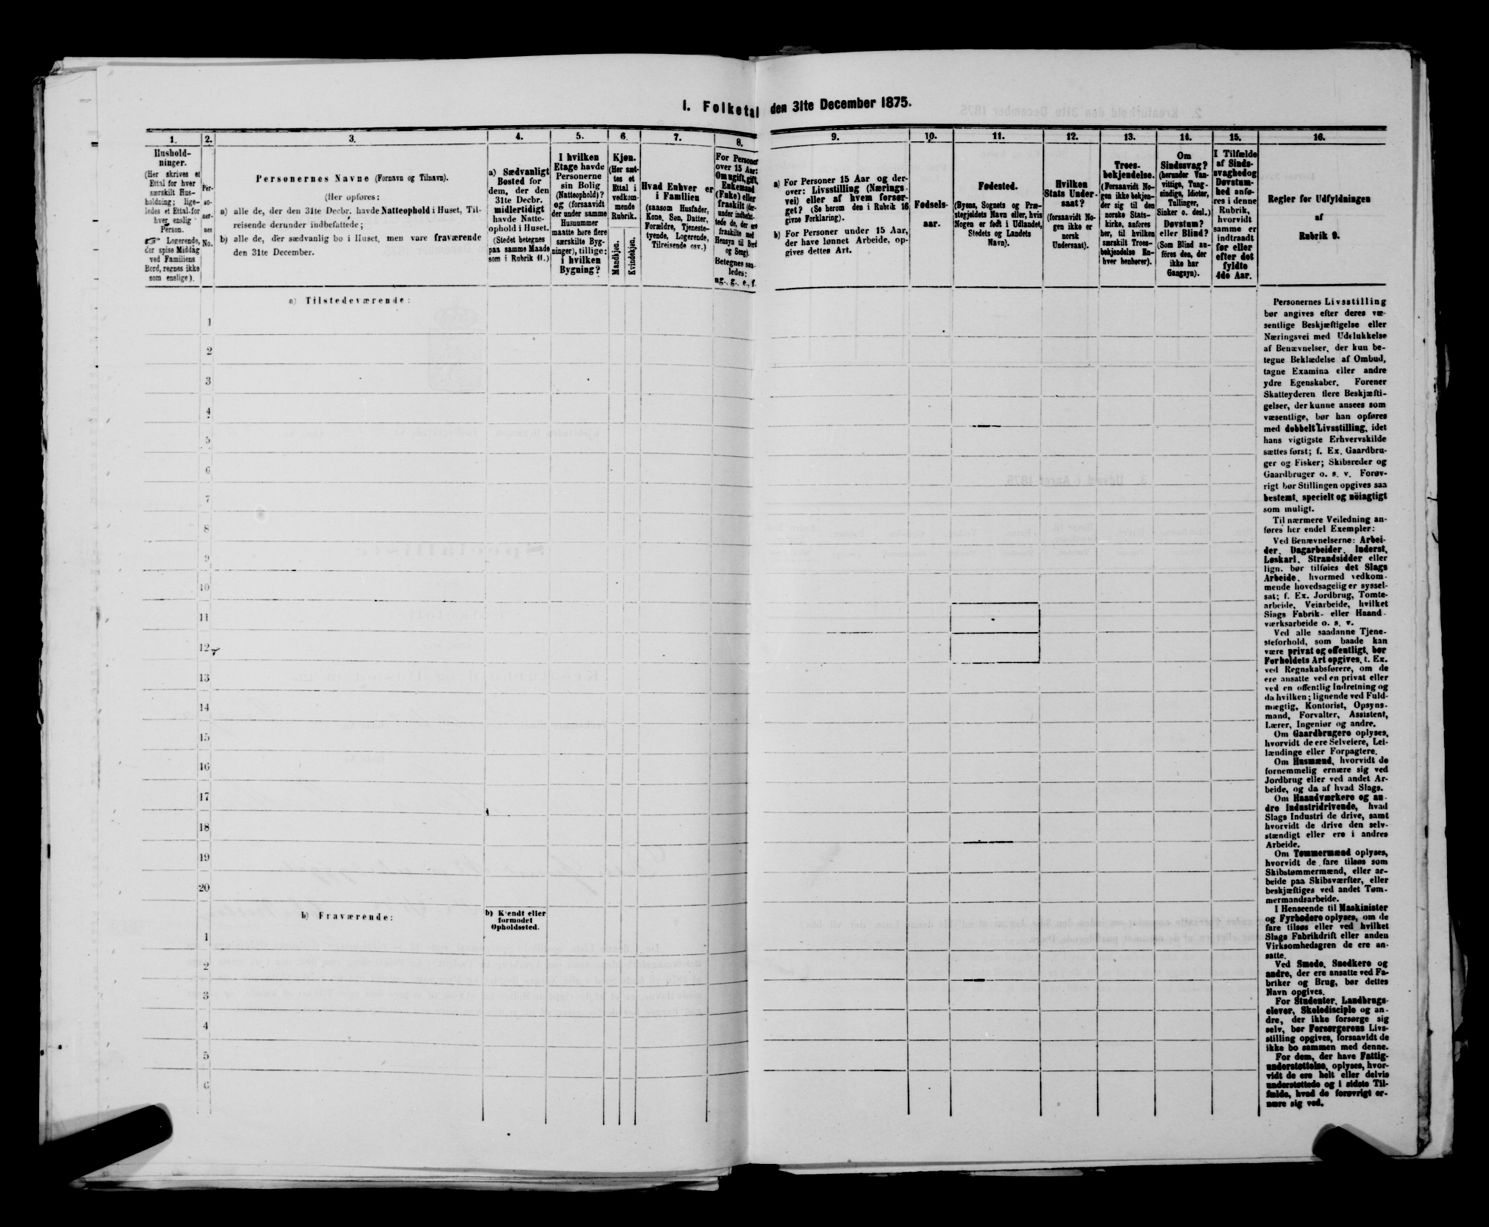 1. Folketal den 31te December 1875.
1.
Hushold-
ninger.
(Her skrives et
Ettal for hver
særskilt Hus-
holdning; lige-
ledes et Ettal for
hver enslig
Person.
Logerende,
der spise Middag
ved Familiens
Bord, regnes ikke
som enslige).
2.
Per-
so-
ner-
nes
No.
3.
Personernes Navne (Fornavn og Tilnavn).
(Her opføres:
a) alle de, der den 31te Decbr. havde Natteophold i Huset, Til-
reisende derunder indbefattede;
b) alle de, der sædvanlig bo i Huset, men vare fraværende
den 31te December.
4.
a) Sædvanligt
Bosted for
dem, der den
31te Decbr.
midlertidigt
havde Natte-
ophold i Huset.
(Stedet betegnes
paa samme Maade
som i Rubrik 11.)
5.
I hvilken
Etage havde
Personerne
sin Bolig
(Natteophold)?
og (forsaavidt
der under samme
Husnummer
maatte høre flere
særskilte Byg-
ninger), tillige:
i hvilken
Bygning?
6.
Kjøn.
(Her sæt-
tes et
Ettal i
vedkom-
mende
Rubrik.
Mandkjøn.
Kvindekjøn.
7.
Hvad Enhver er
i Familien
(saasom Husfader,
Kone, Søn, Datter,
Forældre, Tjeneste-
tyende, Logerende,
Tilreisende osv.)
8.
For Personer
over 15 Aar:
Om ugift, gift,
Enkemand
(Enke) eller
fraskilt (der-
under indbefat-
tede de, der ere
fraskilte med
Hensyn til Bord
og Seng).
Betegnes saa-
ledes:
ug., g., e., f.
9.
a) For Personer 15 Aar og der-
over: Livsstilling (Nærings-
vei) eller af hvem forsør-
get? (Se herom den i Rubrik 16
givne Forklaring).
b) For Personer under 15 Aar,
der have lønnet Arbeide, op-
gives dettes Art.
10.
Fødsels-
aar.
11.
Fødested.
(Byens, Sognets og Præ-
stegjeldets Navn eller, hvis
Nogen er født i Udlandet,
Stedets og Landets
Navn).
12.
Hvilken
Stats Under-
saat?
(forsaavidt No-
gen ikke er
norsk
Undersaat).
13.
Troes-
bekjendelse.
(Forsaavidt No-
gen ikke bekjen-
der sig til den
norske Stats-
kirke, anføres
her, til hvilken
særskilt Troes-
bekjendelse En-
hver henhører).
14.
Om
Sindssvag?
(herunder Van-
vittige, Tung-
sindige, Idioter,
Tullinger,
Sinker o. desl.)
Døvstum?
eller Blind?
(Som Blind an-
føres den, der
ikke har
Gangsyn).
15.
I Tilfælde
af Sinds-
svaghed og
Døvstum-
hed anfø-
res i denne
Rubrik,
hvorvidt
samme er
indtraadt
før eller
efter det
fyldte
4de Aar.
16.
Regler for Udfyldningen
af
Rubrik 9.
a) Tilstedeværende:
1
2
3
4
5
6
7
8
9
10
11
12
13
14
15
16
17
18
19
20
b) Fraværende:
b) Kjendt eller
formodet
Opholdssted.
1
2
3
4
5
6
Personernes Livsstilling
bør angives efter deres væ-
sentlige Beskjæftigelse eller
Næringsvei med Udelukkelse
af Benævnelser, der kun be-
tegne Beklædelse af Ombud,
tagne Examina eller andre
ydre Egenskaber. Forener
Skatteyderen flere Beskjæfti-
gelser, der kunne ansees som
væsentlige, bør han opføres
med dobbelt Livsstilling, idet
hans vigtigste Erhvervskilde
sættes først; f. Ex. Gaardbru-
ger og Fisker; Skibsreder og
Gaardbruger o. s. v. Forøv-
rigt bør Stillingen opgives saa
bestemt, specielt og nøiagtigt
som muligt.
Til nærmere Veiledning an-
føres her endel Exempler:
Ved Benævnelserne: Arbei-
der, Dagarbeider, Inderst,
Løskarl, Strandsidder eller
lign. bør tilføies det Slags
Arbeide, hvormed vedkom-
mende hovedsagelig er syssel-
sat; f. Ex. Jordbrug, Tomte-
arbeide, Veiarbeide, hvilket
Slags Fabrik- eller Haand-
værksarbeide o. s. v.
Ved alle saadanne Tjene-
steforhold, som baade kan
være privat og offentligt, bør
Forholdets Art opgives, t. Ex.
ved Regnskabsførere, om de
ere ansatte ved en privat eller
ved en offentlig Indretning og
da hvilken; lignende ved Fuld-
mægtig, Kontorist, Opsyns-
mand, Forvalter, Assistent,
Lærer, Ingeniør og andre.
Om Gaardbrugere oplyses,
hvorvidt de ere Selveiere, Lei-
lændinge eller Forpagtere.
Om Husmænd, hvorvidt de
fornemmelig ernære sig ved
Jordbrug eller ved andet Ar-
beide, og da af hvad Slags.
Om Haandværkere og an-
dre Industridrivende, hvad
Slags Industri de drive, samt
hvorvidt de drive den selv-
stændigt eller ere i andres
Arbeide.
Om Tømmermænd oplyses,
hvorvidt de fare tilsøs som
Skibstømmermænd, eller ar-
beide paa Skibsværfter, eller
beskjæftiges ved andet Tøm-
mermandsarbeide.
I Henseende til Maskinister
og Fyrbødere oplyses, om de
fare tilsøs eller ved hvilket
Slags Fabrikdrift eller anden
Virksomhedsgren de ere an-
satte.
Ved Smede, Snedkere og
andre, der ere ansatte ved Fa-
briker og Brug, bør dettes
Navn opgives.
For Studenter, Landbrugs-
elever, Skoledisciple og an-
dre, der ikke forsørge sig
selv, bør Forsørgerens Livs-
stilling opgives, forsaavidt de
ikke bo sammen med denne.
For dem, der have Fattig-
understøttelse, oplyses, hvor-
vidt de ere helt eller delvis
understøttede og i sidste Til-
fælde, hvad de forøvrigt er-
nære sig ved.